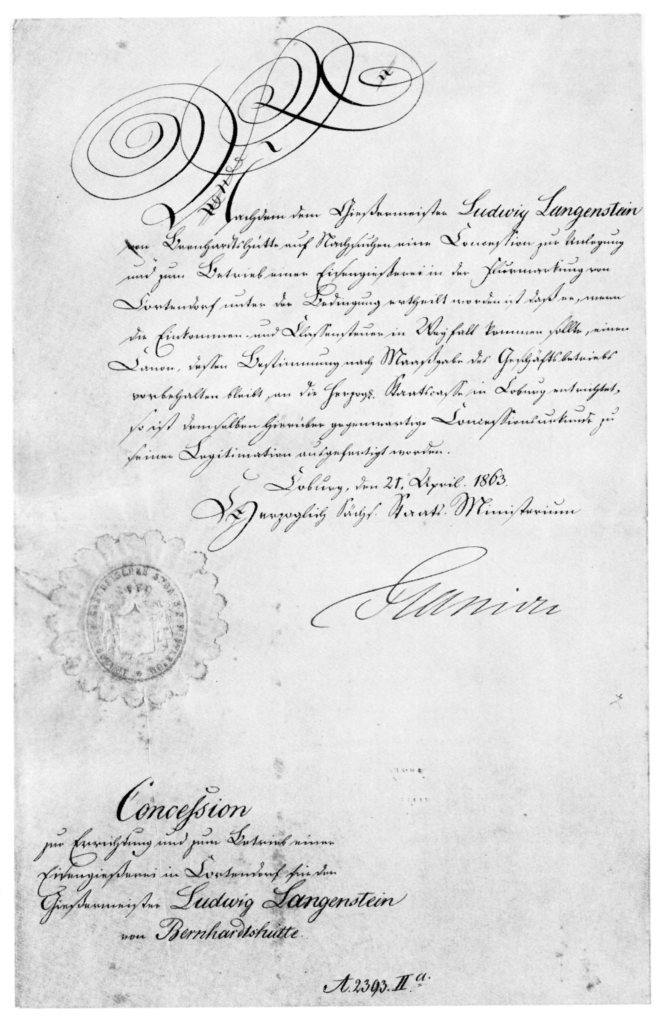 Nachdem dem Gießermeister Ludwig Langenstein
von Bernhardtshütte auf Nachsuchen eine Concession zur Anlegung
und zum Betrieb einer Eisengießerei in der Flurmarkung von
Cortendorf unter der Bedingung ertheilt worden ist daß er, wenn
die Einkommen- und Classensteuer in Wegfall kommen sollte, einen
Canon, dessen Bestimmung nach Maaßgabe des Geschäftsbetriebs
vorbehalten bleibt, an die Herzogl. Staatscasse in Coburg entrichtet,
so ist demselben hierüber gegenwärtige Concessionsurkunde zu
seiner Legitimation ausgefertigt worden.
Coburg, den 21. April. 1863.
Herzoglich Sächs. Staats-Ministerium
Concession
zur Errichtung und zum Betrieb einer
Eisengießerei in Cortendorf für den
Gießermeister Ludwig Langenstein
von Bernhardtshütte.
A. 2393. II a.